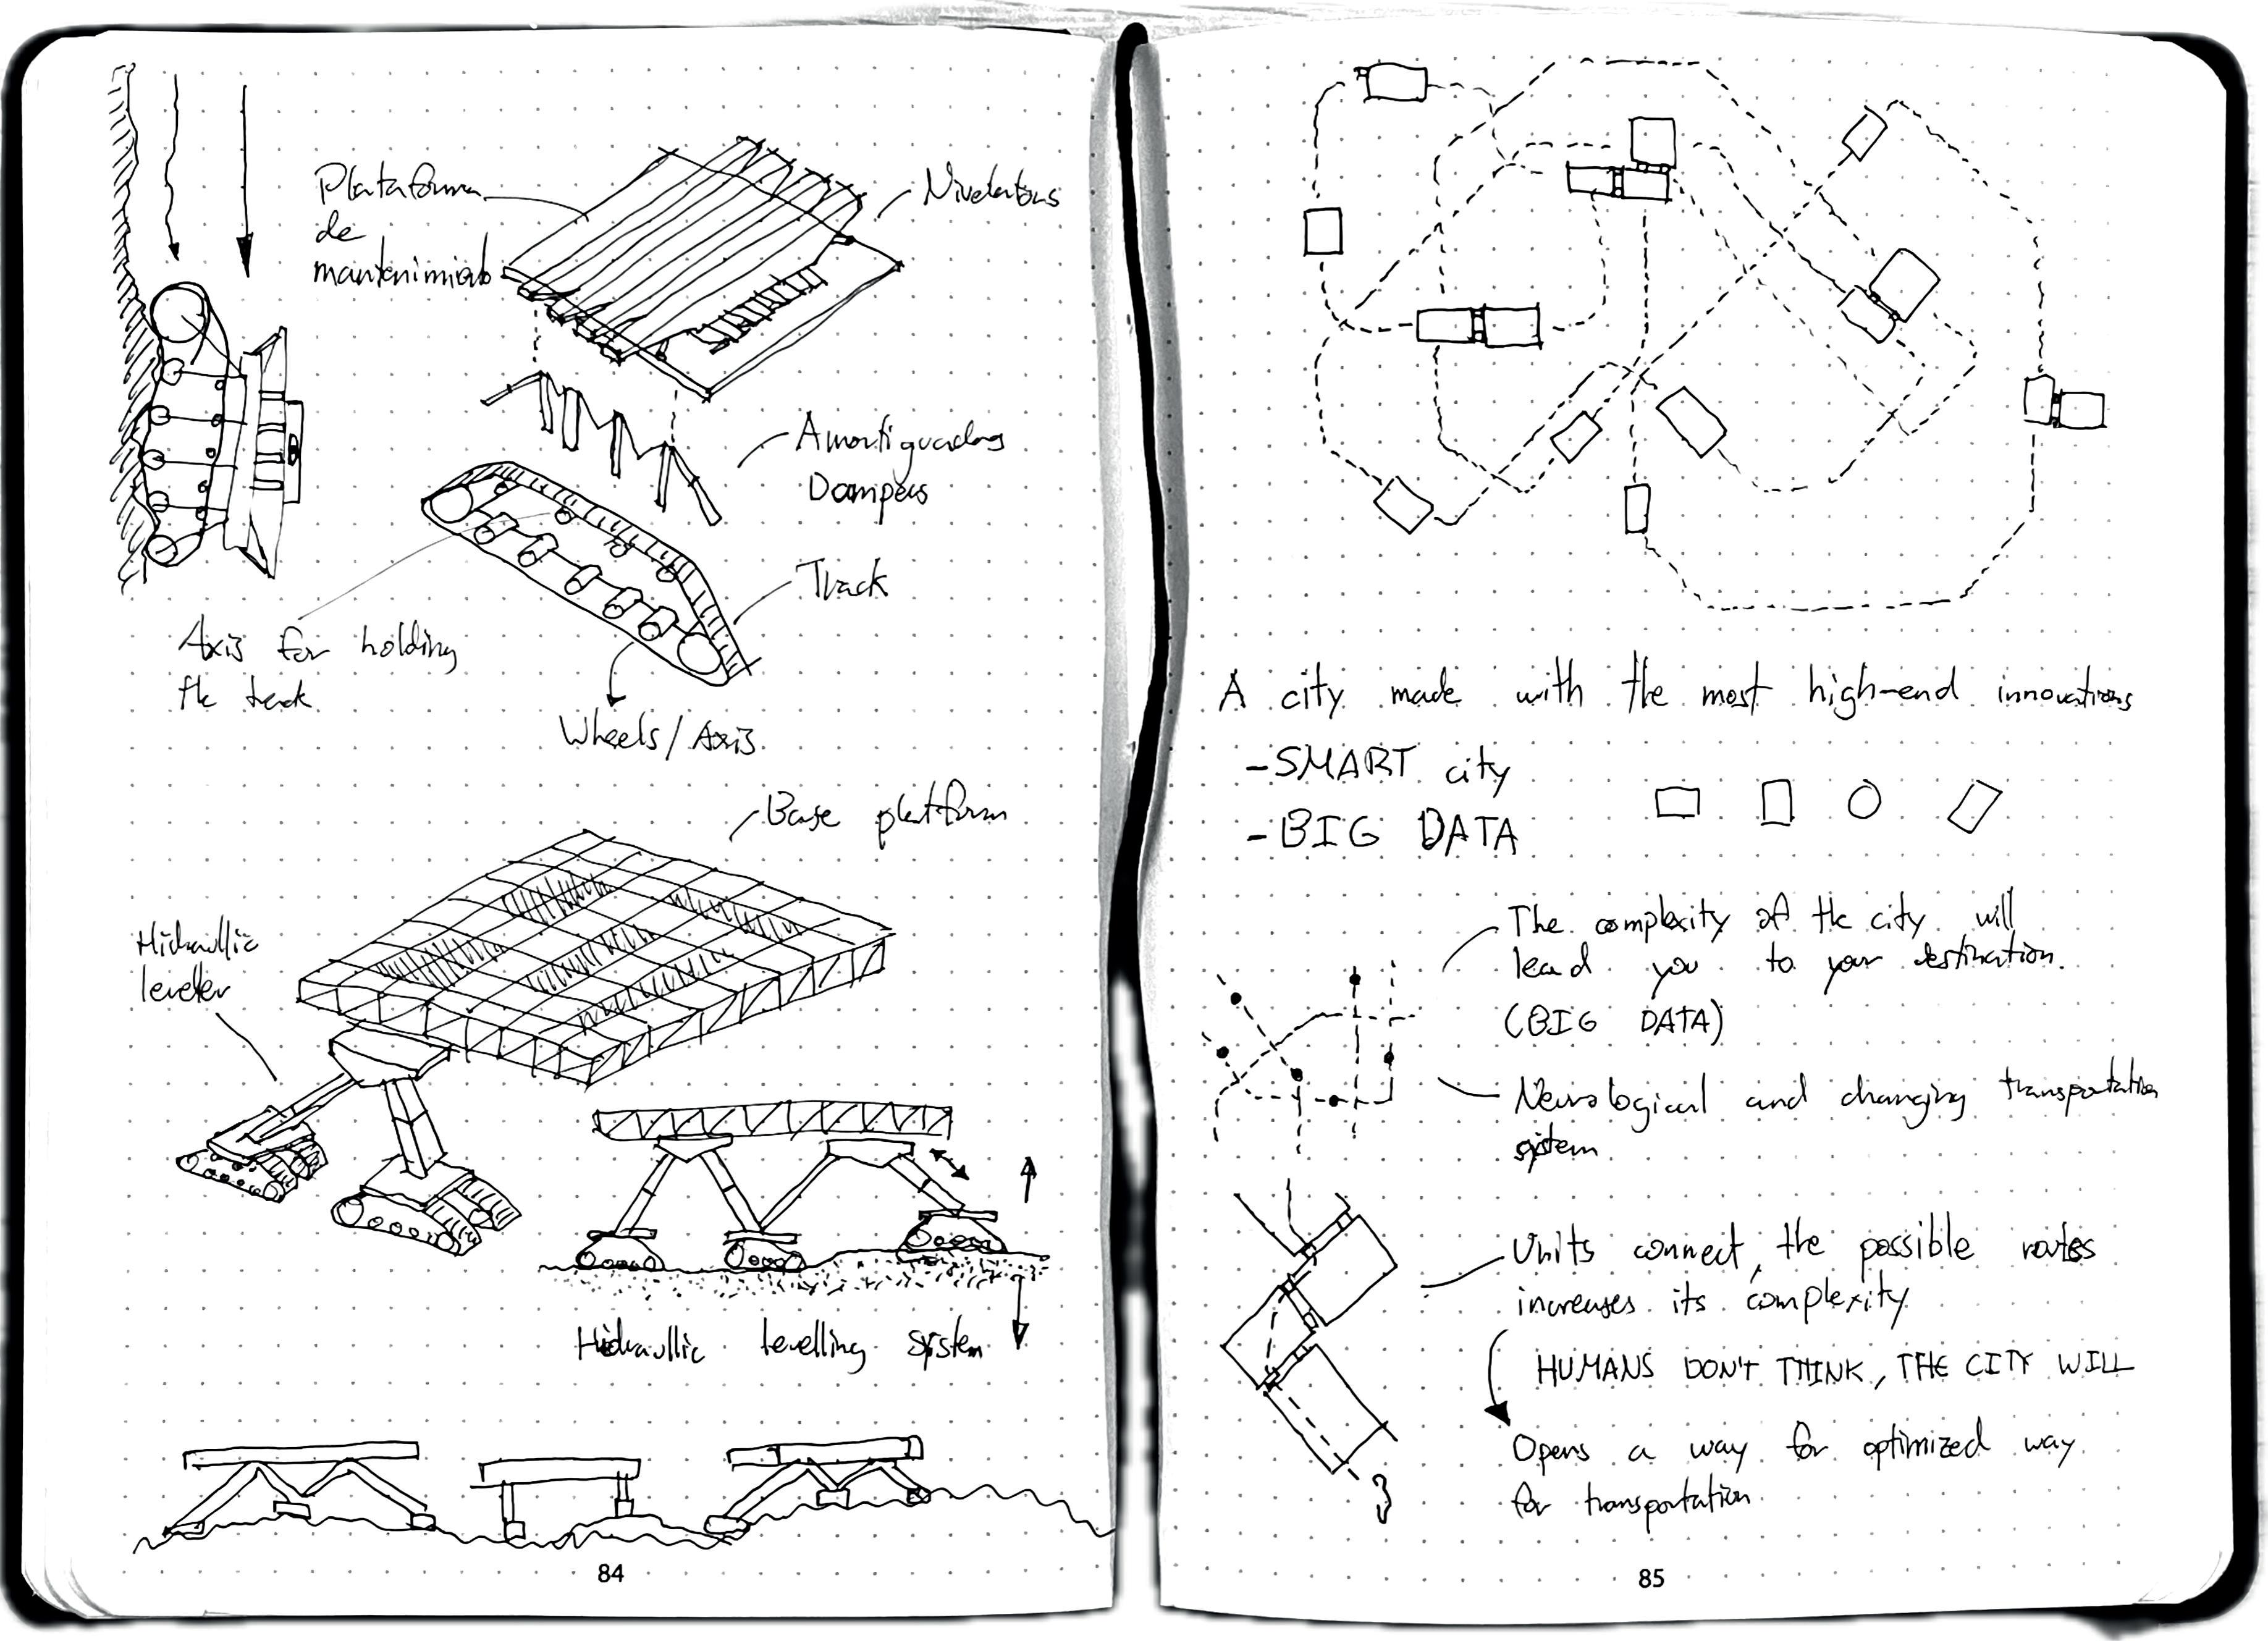 Plataforma
de
mantenimiento
Niveladores
Amortiguadores
Dampers
Track
Axis for holding
the track
Wheels/Axis
Base platform
Hidraullic
leveler
Hidraullic levelling system
84
A city made with the most high-end innovations
-SMART city
-BIG DATA
The complexity of the city will
lead you to your destination.
(BIG DATA)
Neurological and changing transportation
system
Units connect, the possible routes
increases its complexity
HUMANS DON'T THINK, THE CITY WILL
Opens a way for optimized way
for transportation
85